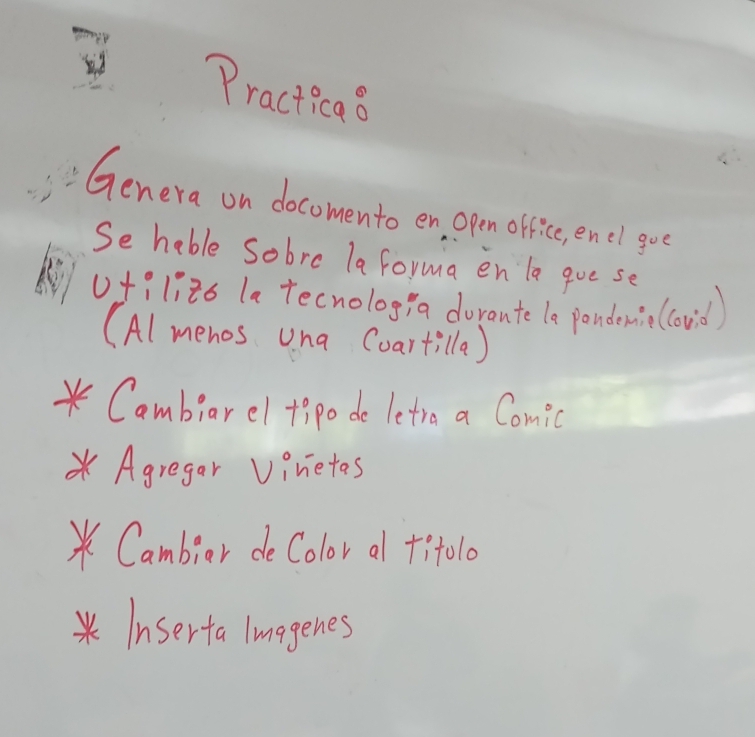 Practica:
Genera un documento en Open office, en el que
Se hable Sobre la forma en la que se
Utilizó la tecnología durante la pandemia (Covid)
(Al menos una Cuartilla)
* Cambiar el tipo de letra a Comic
* Agregar Viñetas
* Cambiar de Color al titulo
* Inserta Imagenes